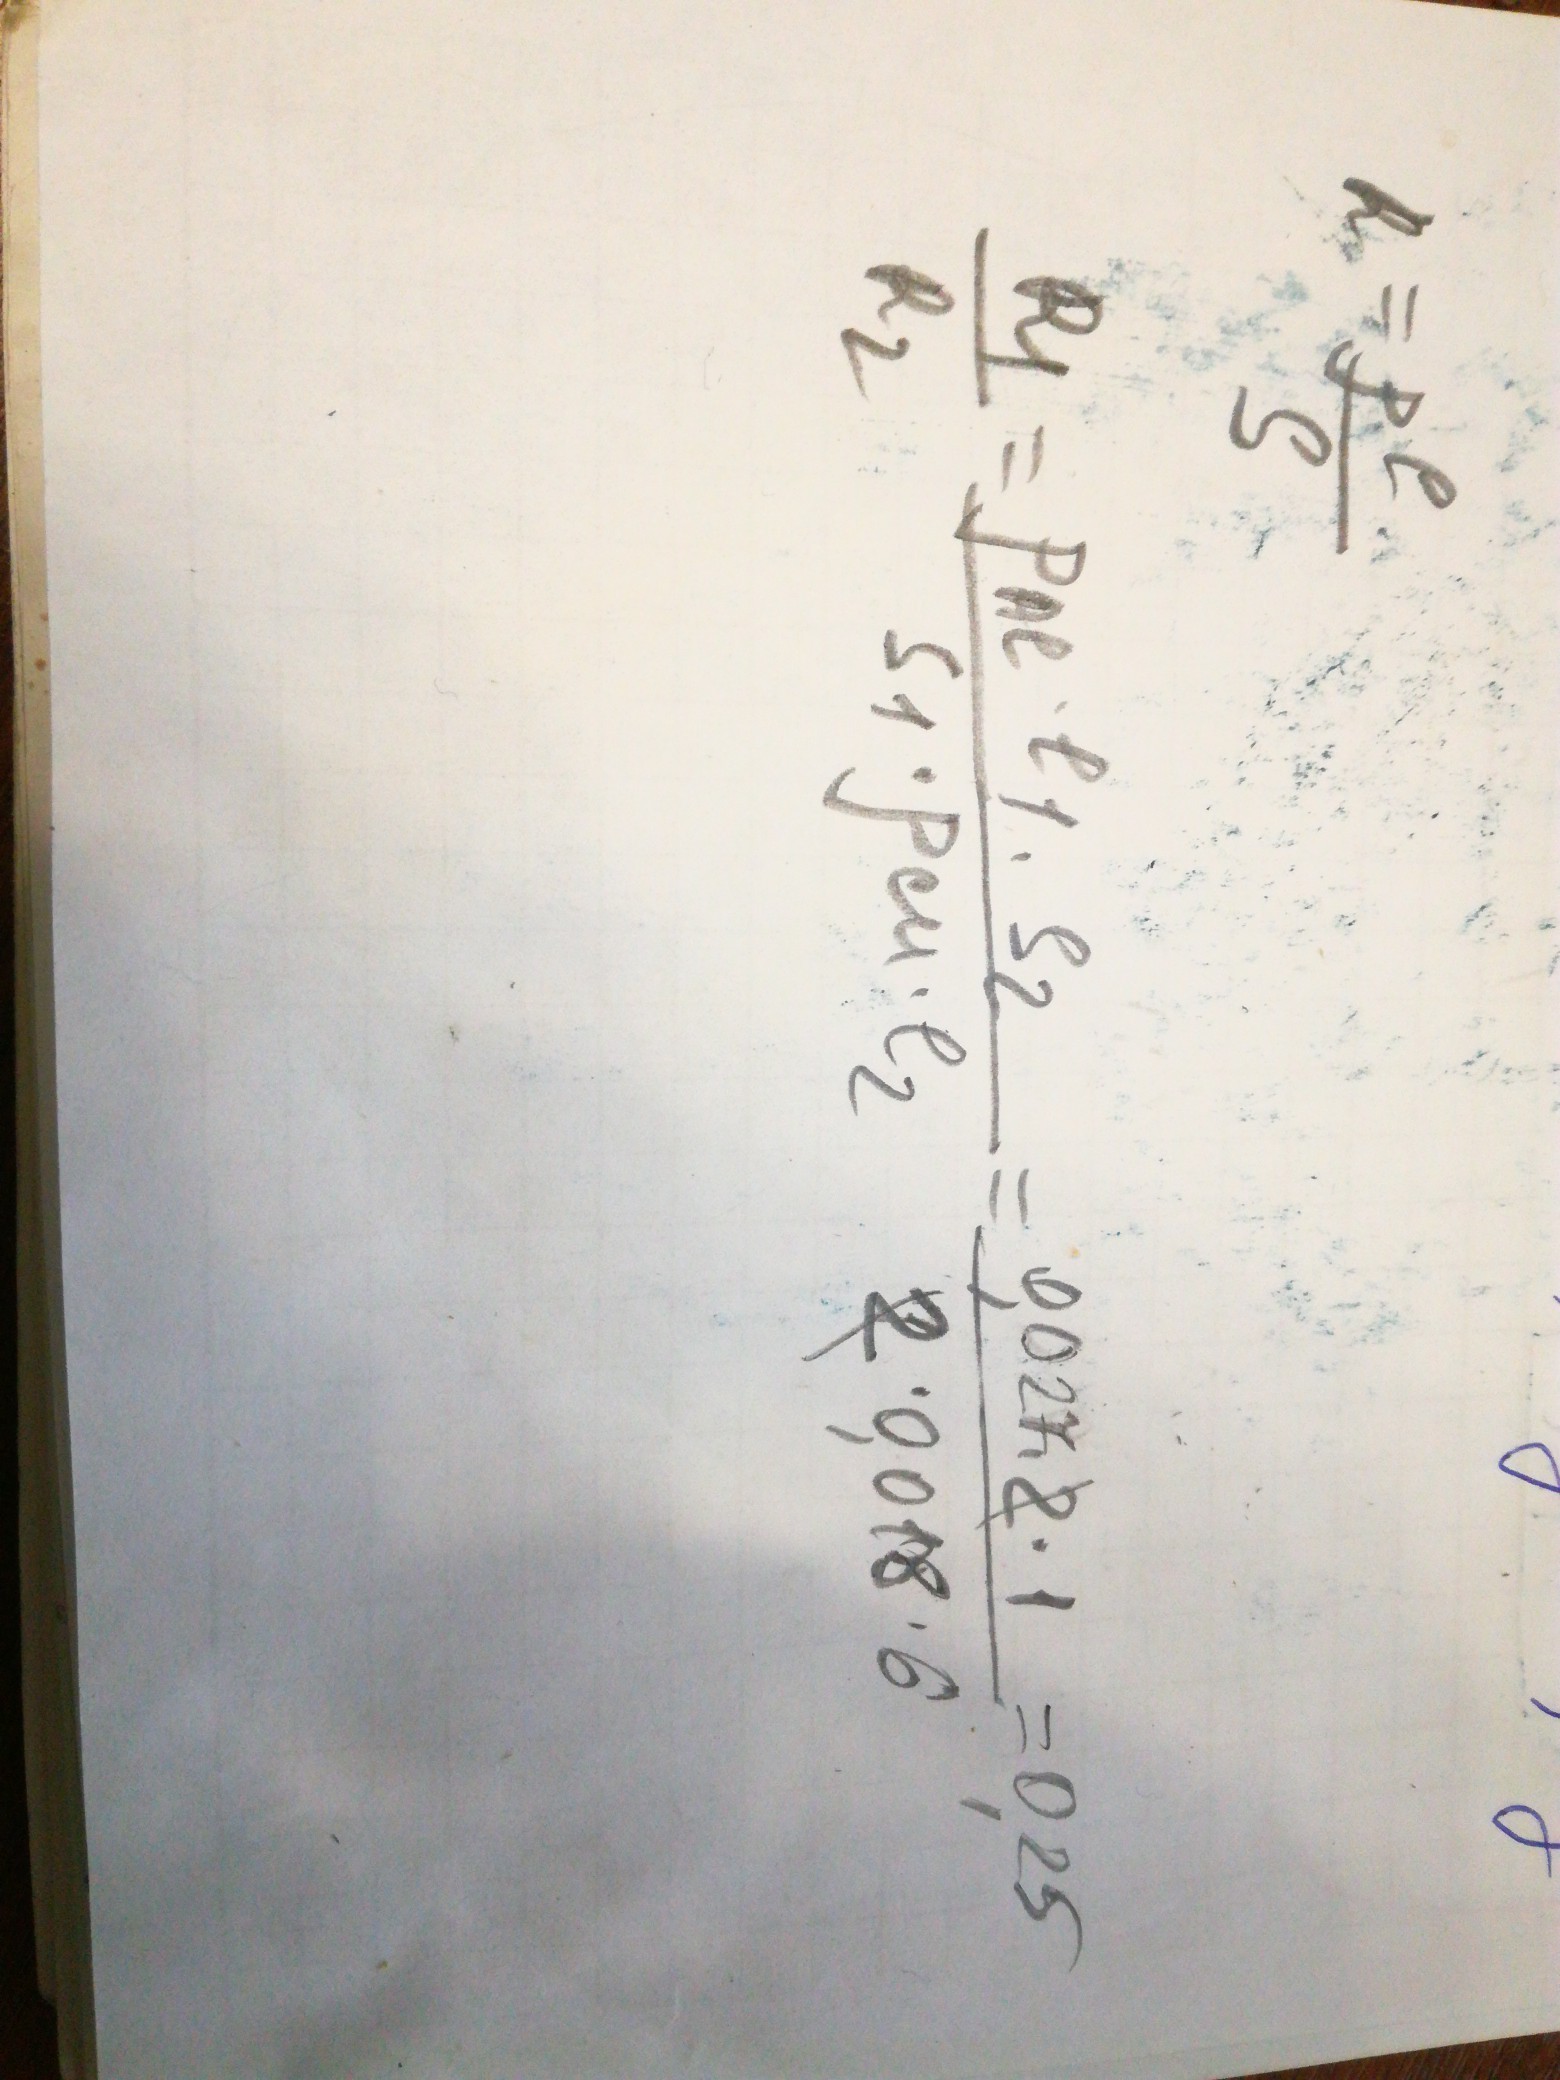 R = ρl / S
R1 / R2 = ρал · l1 · S2 / S1 · ρм · l2 = 0,027 · 2 · 1 / 2 · 0,018 · 6 = 0,25